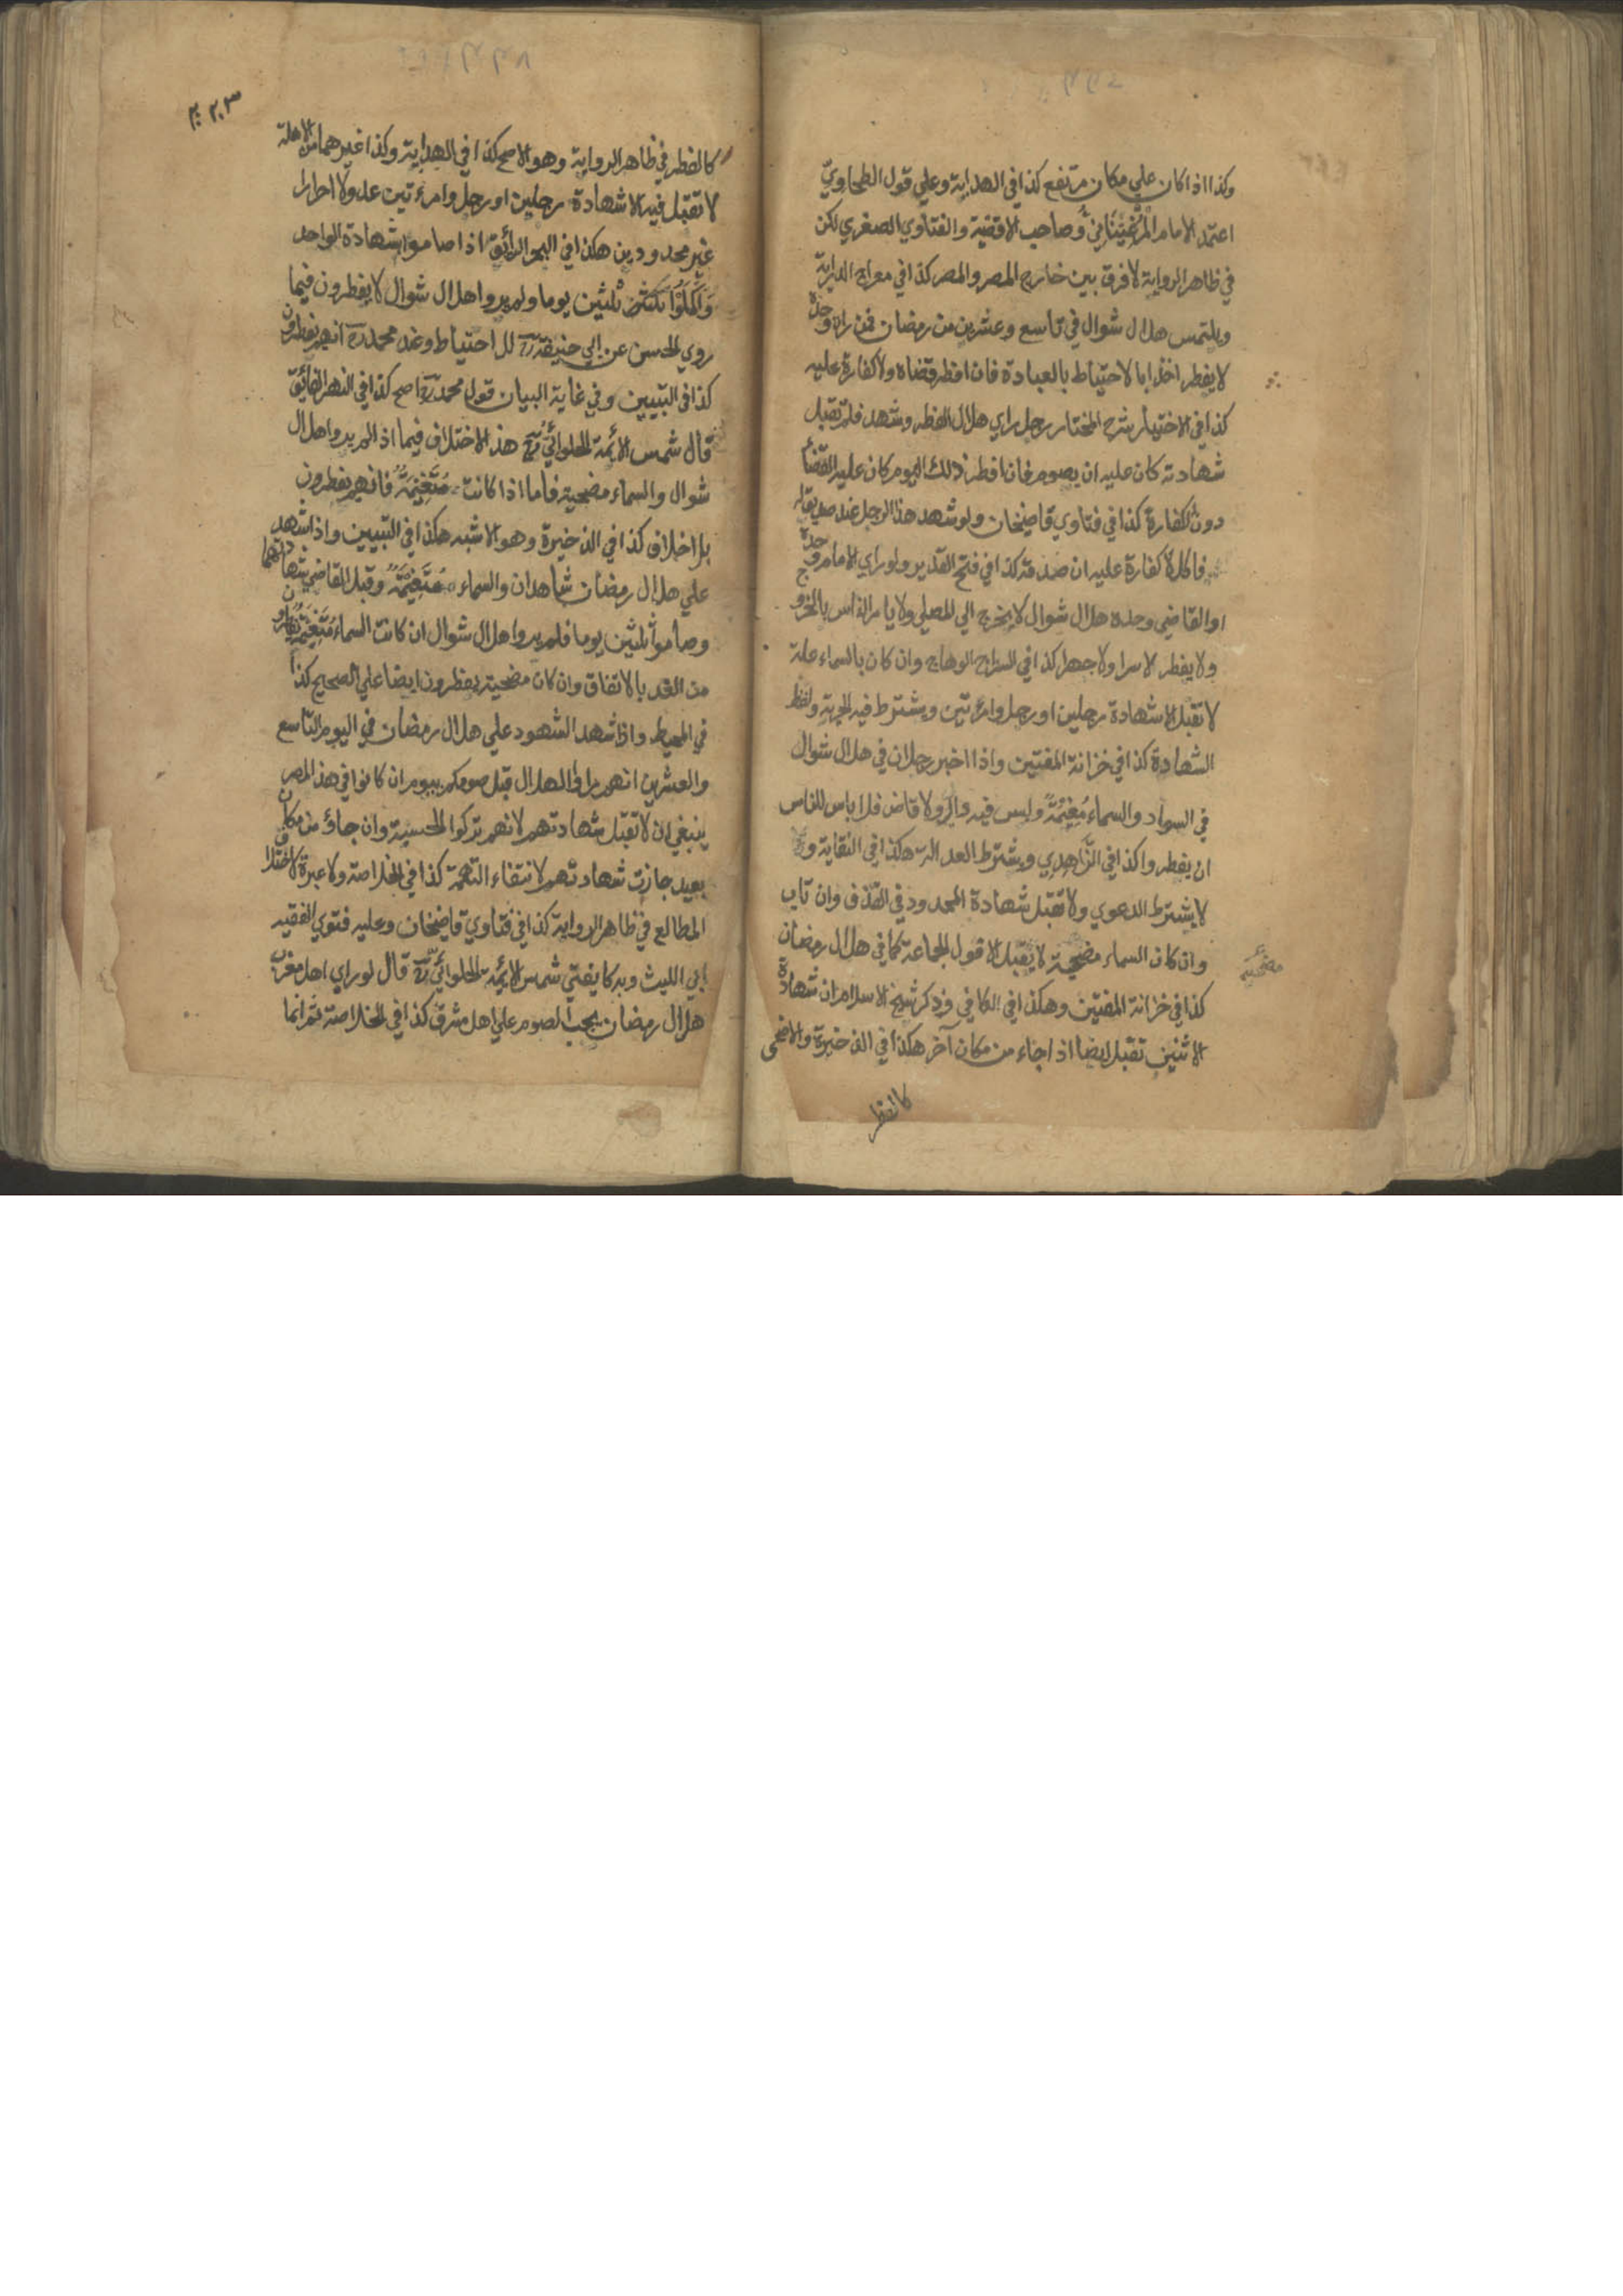 وكذا اذا كان علي مكان مرتفع كذا في الهداية وعلي قول الطحاويّ
اعتمد الامام المرغينانيّ وصاحب الاقضية والفتاوي الصغري لكن
في ظاهر الرواية لا فرق بين خارج المصر والمصر كذا في معراج الدراية
ويلتمس هلال شوال في تاسع وعشرين من رمضان فمن راه وحده
لا يفطر اخذا بالاحتياط بالعبادة فان افطر قضاه ولا كفارة عليه
كذا في الاختيار شرح المختار رجل راي هلال الفطر وشهد فلم تقبل
شهادته كان عليه ان يصوم فان افطر ذلك اليوم كان عليه القضاء
دون الكفارة كذا في فتاوي قاضيخان ولو شهد هذا الرجل عند صديق له
فاكل لا كفارة عليه ان صدقه كذا في فتح القدير ولو راي الامام وحده
او القاضي وحده هلال شوال لا يخرج الي المصلي ولا يامر الناس بالخروج
ولا يفطر لا سرا ولا جهرا كذا في السراج الوهاج وان كان بالسماء علة
لا تقبل الا شهادة رجلين او رجل وامرءتين ويشترط فيه الحرية ولفظ
الشهادة كذا في خزانة المفتين واذا اخبر رجلان في هلال شوال
في السواد والسماء مُغِيْمَةٌ وليس فيه والٍ ولا قاض فلا باس للناس
ان يفطروا كذا في الزَّاهِدِي ويشترط العدالة هكذا في النقاية و
لا يشترط الدعوي ولا تقبل شهادة المحدود في القذف وان تاب
وان كان السماء مضحية لا يقبل الا قول الجماعة كما في هلال رمضان
مضحية
كذا في خزانة المفتين وهكذا في الكافي وذكر شيخ الاسلام ان شهادة
الاثنين تقبل ايضا اذا جاء من مكان آخر هكذا في الذخيرة والاضحي
كالفطر
٢٠٣
كالفطر في ظاهر الرواية وهو الاصح كذا في الهداية وكذا غيرهما من الاهلة
لا تقبل فيه الا شهادة رجلين او رجل وامرءتين عدولا احرارا
غير محدودين هكذا في البحر الرائق اذا صاموا بشهادة الواحد
وَاَكْمَلُوْا ثلثين يوما ولم يروا هلال شوال لا يفطرون فيما
روي الحسن عن ابي حنيفة رح للاحتياط وعند محمد رح انهم يفطرون
كذا في التبيين وفي غاية البيان قول محمد رح اصح كذا في النهر الفائق
قال شمس الائمة الحلوائيّ رح هذا الاختلاف فيما اذا لم يروا هلال
شوال والسماء مضحية فاما اذا كانت مُتَغَيِّمَةٌ فانهم يفطرون
بلا خلاف كذا في الذخيرة وهو الاشبه هكذا في التبيين واذا شهد
علي هلال رمضان شاهدان والسماء مُتَغَيِّمَةٌ وقبل القاضي شهادتهما
وصاموا ثلثين يوما فلم يروا هلال شوال ان كانت السماء مُتَغَيِّمَةٌ يفطرون
من الغد بالاتفاق وان كان مضحية يفطرون ايضا علي الصحيح كذا
في المحيط واذا شهد الشهود علي هلال رمضان في اليوم التاسع
والعشرين انهم راوا الهلال قبل صومكم بيوم ان كانوا في هذا المصر
ينبغي ان لا تقبل شهادتهم لانهم تركوا الحسبة وان جاؤ من مكان
بعيد جازت شهادتهم لانتفاء التهمة كذا في الخلاصة ولا عبرة لاختلاف
المطالع في ظاهر الرواية كذا في فتاوي قاضيخان وعليه فتوي الفقيه
ابي الليث وبه كا يفتي شمس الائمة الحلوائيّ رح قال لو راي اهل مغرب
هلال رمضان يجب الصوم علي اهل مشرق كذا في الخلاصة ثم انما